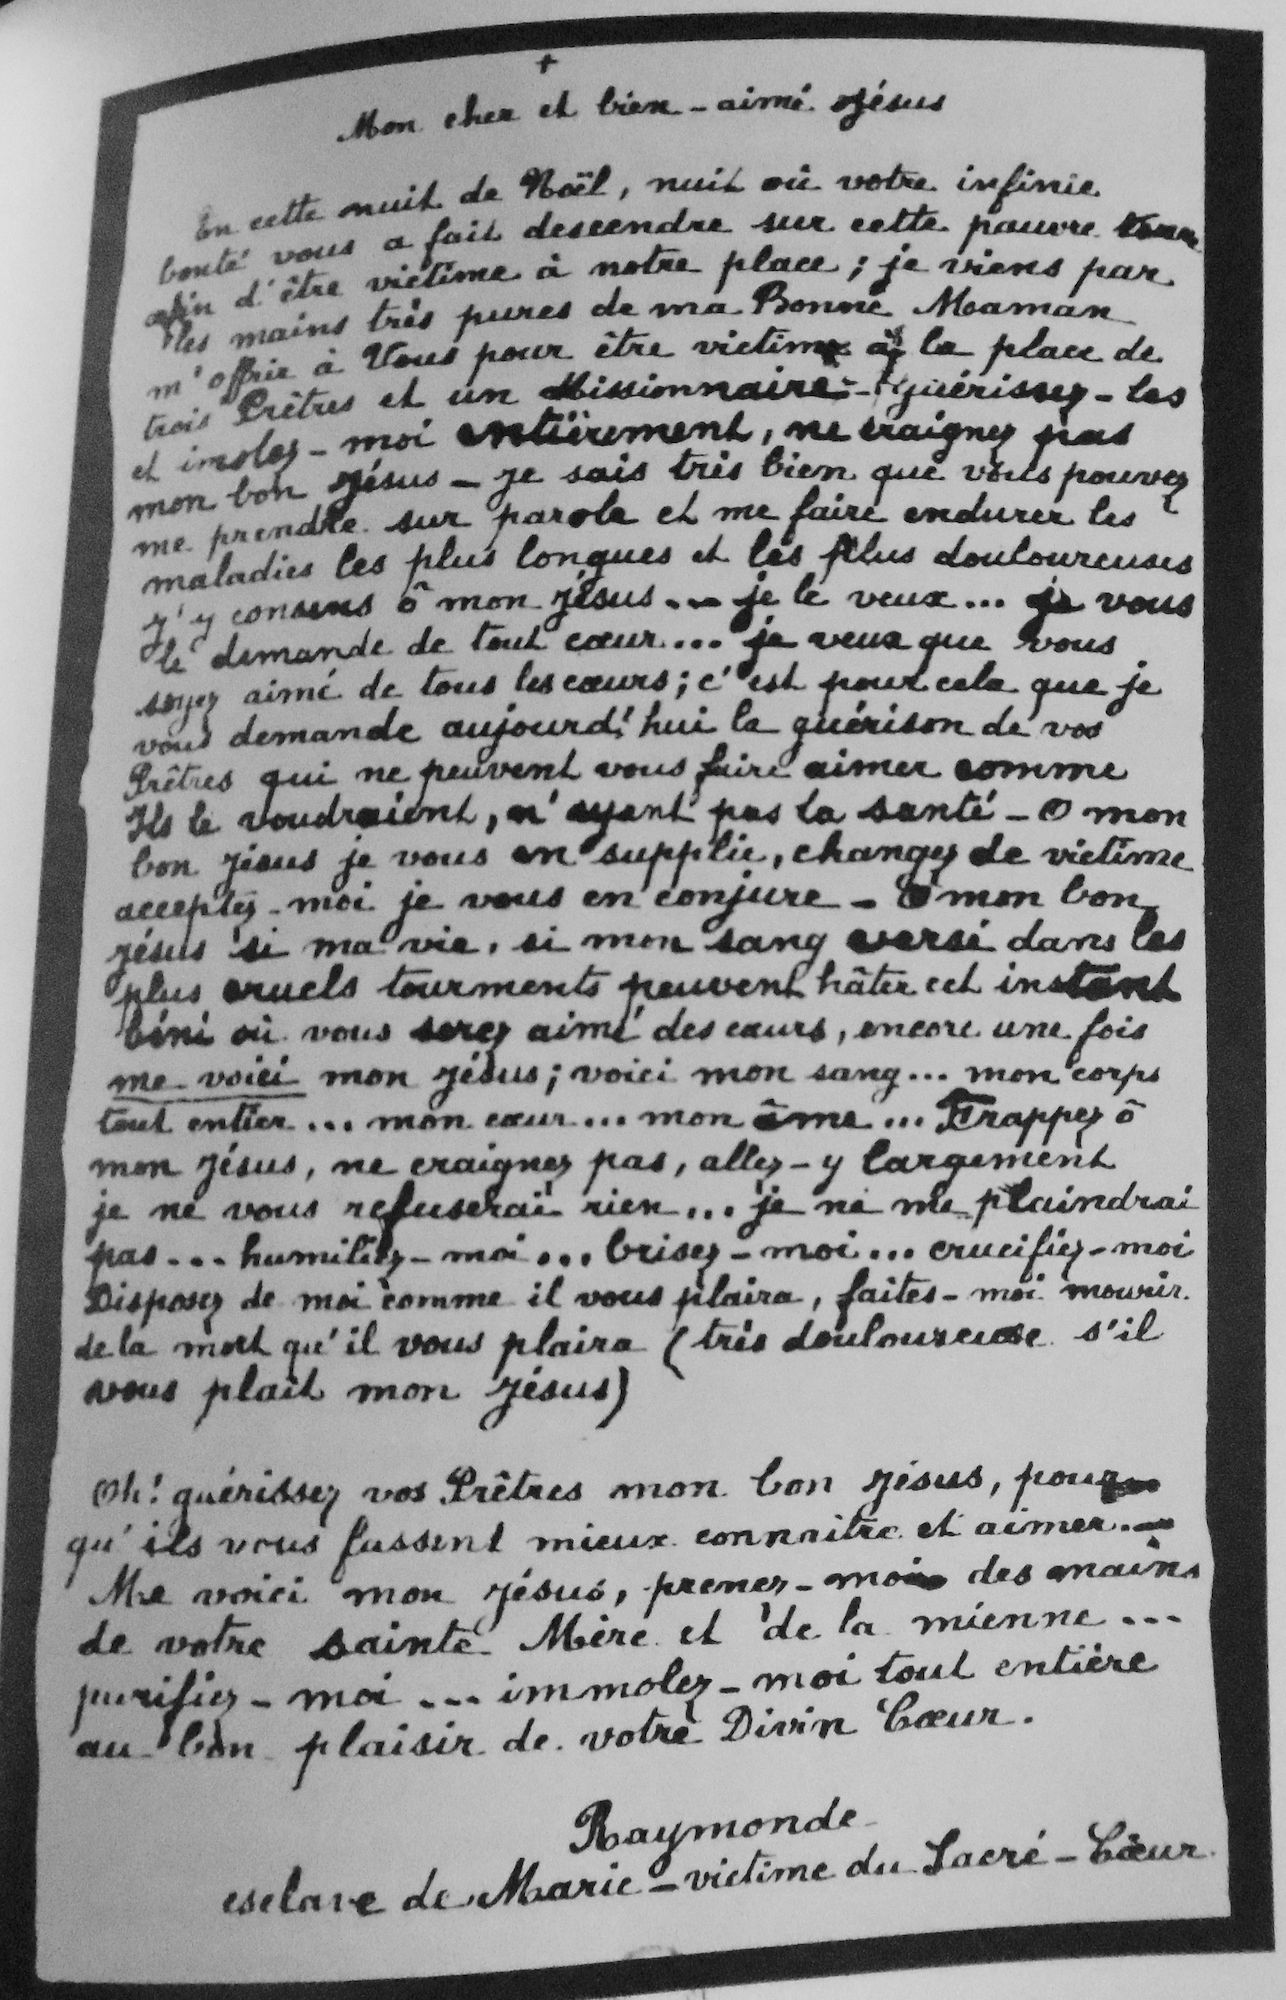 +
Mon cher et bien-aimé Jésus
En cette nuit de Noël, nuit où votre infinie
bonté vous a fait descendre sur cette pauvre terre
afin d'être victime à notre place ; je viens par
les mains très pures de ma Bonne Maman
m'offrir à Vous pour être victime à la place de
trois Prêtres et un Missionnaire - Guérissez-les
et imolez-moi entièrement, ne craignez pas
mon bon Jésus - je sais très bien que vous pouvez
me prendre sur parole et me faire endurer les
maladies les plus longues et les plus douloureuses
j'y consens ô mon Jésus... je le veux... je vous
le demande de tout cœur... je veux que vous
soyez aimé de tous les cœurs ; c'est pour cela que je
vous demande aujourd'hui la guérison de vos
Prêtres qui ne peuvent vous faire aimer comme
Ils le voudraient, n'ayant pas la santé - O mon
bon Jésus je vous en supplie, changez de victime
acceptez-moi je vous en conjure - O mon bon
Jésus si ma vie, si mon sang versé dans les
plus cruels tourments peuvent hâter cet instant
béni où vous serez aimé des cœurs, encore une fois
me voici mon Jésus ; voici mon sang... mon corps
tout entier... mon cœur... mon âme... Frappez ô
mon Jésus, ne craignez pas, allez-y largement
je ne vous refuserai rien... je ne me plaindrai
pas... humiliez-moi... brisez-moi... crucifiez-moi
Disposez de moi comme il vous plaira, faites-moi mourir
de la mort qu'il vous plaira (très douloureuse s'il
vous plaît mon Jésus)
Oh! guérissez vos Prêtres mon bon Jésus, pour
qu'ils vous fassent mieux connaître et aimer.-
Me voici mon Jésus, prenez-moi des mains
de votre sainte Mère et de la mienne...
purifiez-moi... immolez-moi tout entière
au bon plaisir de votre Divin Cœur.
Raymonde
esclave de Marie - victime du Sacré-Cœur